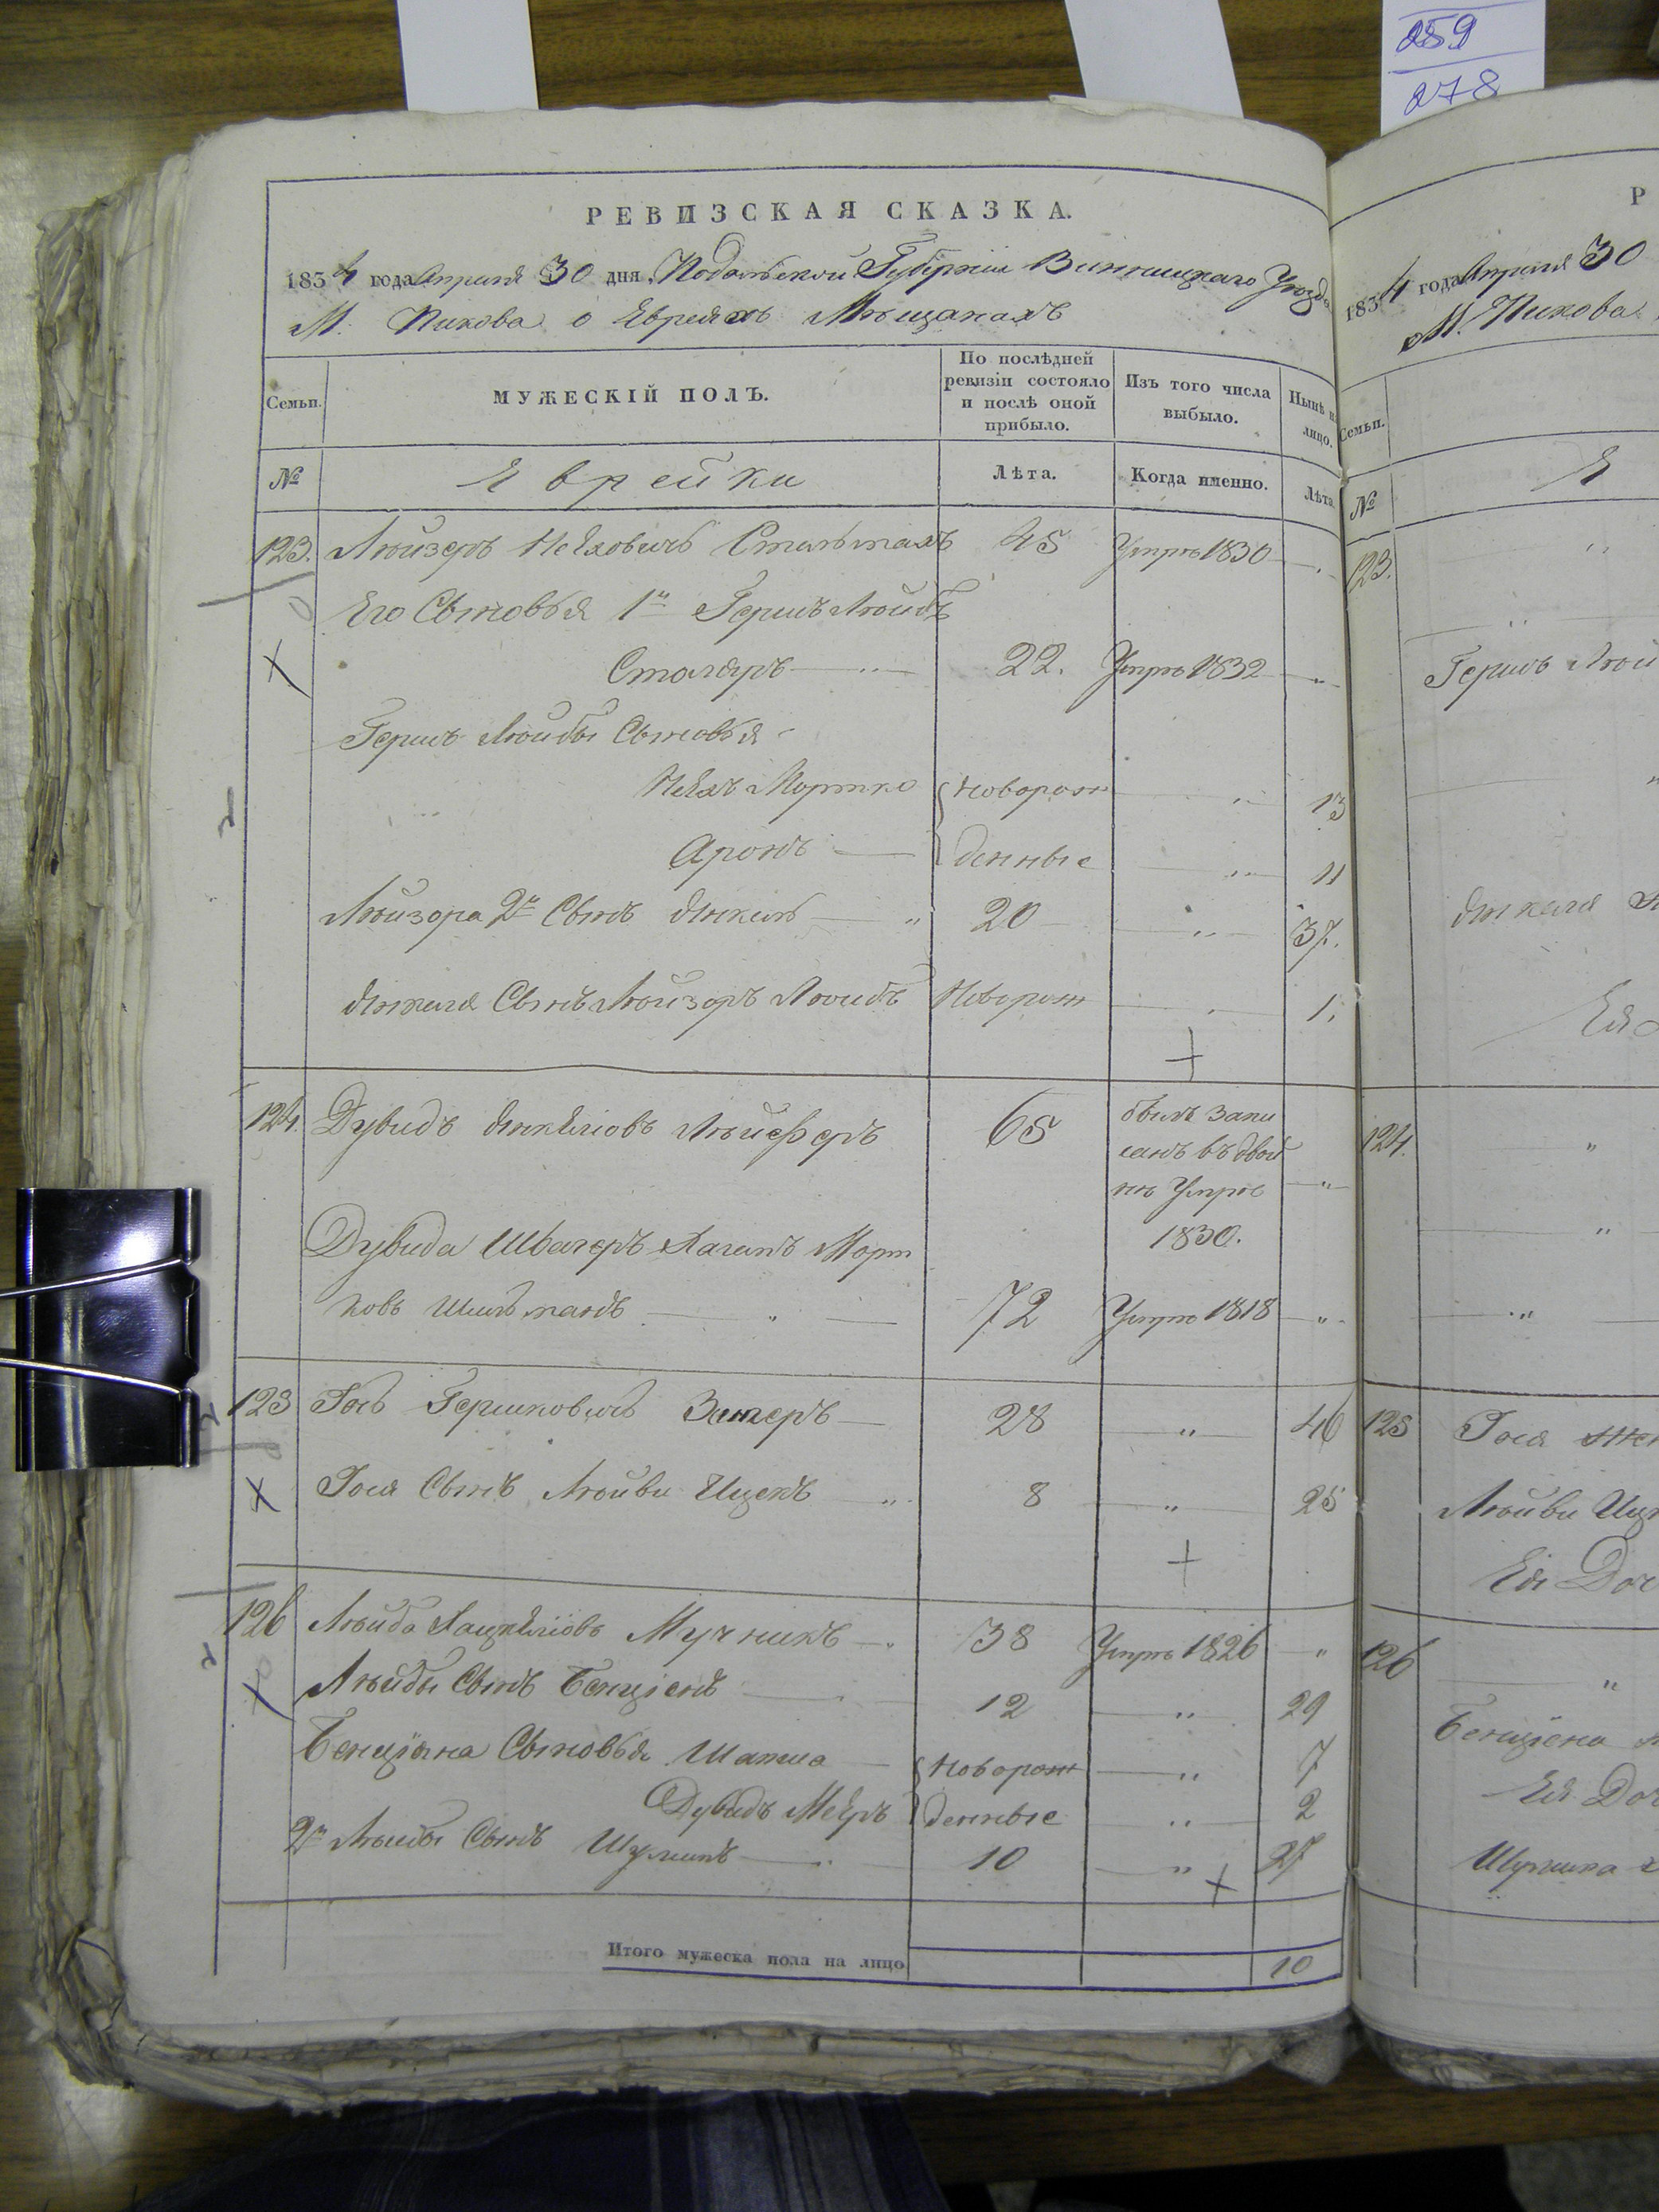 259
278
РЕВИЗСКАЯ СКАЗКА.
1834 года Апреля 30 дня, Подольской Губерніи Винницкаго Уезда
М. Пикова о Евреяхъ Мѣщанахъ
Семьи.
МУЖЕСКІЙ ПОЛЪ.
По послѣдней ревизіи состояло и послѣ оной прибыло.
Изъ того числа выбыло.
Нынѣ на лицо.
№
Еврейки
Лѣта.
Когда именно.
Лѣта
123. Лейзеръ 45 Умръ 1830
Его Сыновья 1й Гершъ Лейбъ
Столяръ 22. Умръ 1832 "
Гершъ Лейбы Сыновья
Мортко новорож " 13
Аронъ денные " 11
Лейзора 2й Сынъ Янкель " 20 " 37.
Янкеля Сынъ Лейзоръ Лейбъ Новорож 1.
124. Дувидъ Янкелiовъ 65 былъ запи
санъ въ двой
нѣ Умръ "
1830.
Дувида Швагеръ Каганъ Морт
ковъ 72 Умръ 1818 "
125 Гершковичъ 28 " 46
Сынъ Лейви Ицекъ " 8 " 25
126 Лейба Хацкелiовъ Мучникъ 38 Умръ 1826 "
Лейбы Сынъ Бенціонъ 12 " 29
Бенціона Сыновья Шапша новорож " 7
Дувидъ Мееръ денные " 2
2й Лейбы Сынъ Шулимъ 10 " 27
Итого мужеска пола на лицо 10
Р
1834 года Апреля 30
М. Пикова
Семьи.
№
Е
123.
"
Гершъ Лей
Янкеля
Ея
124.
"
"
"
125
Лейви Иц
Ея Доч
126
"
Бенціона
Ея Доч
Шулима